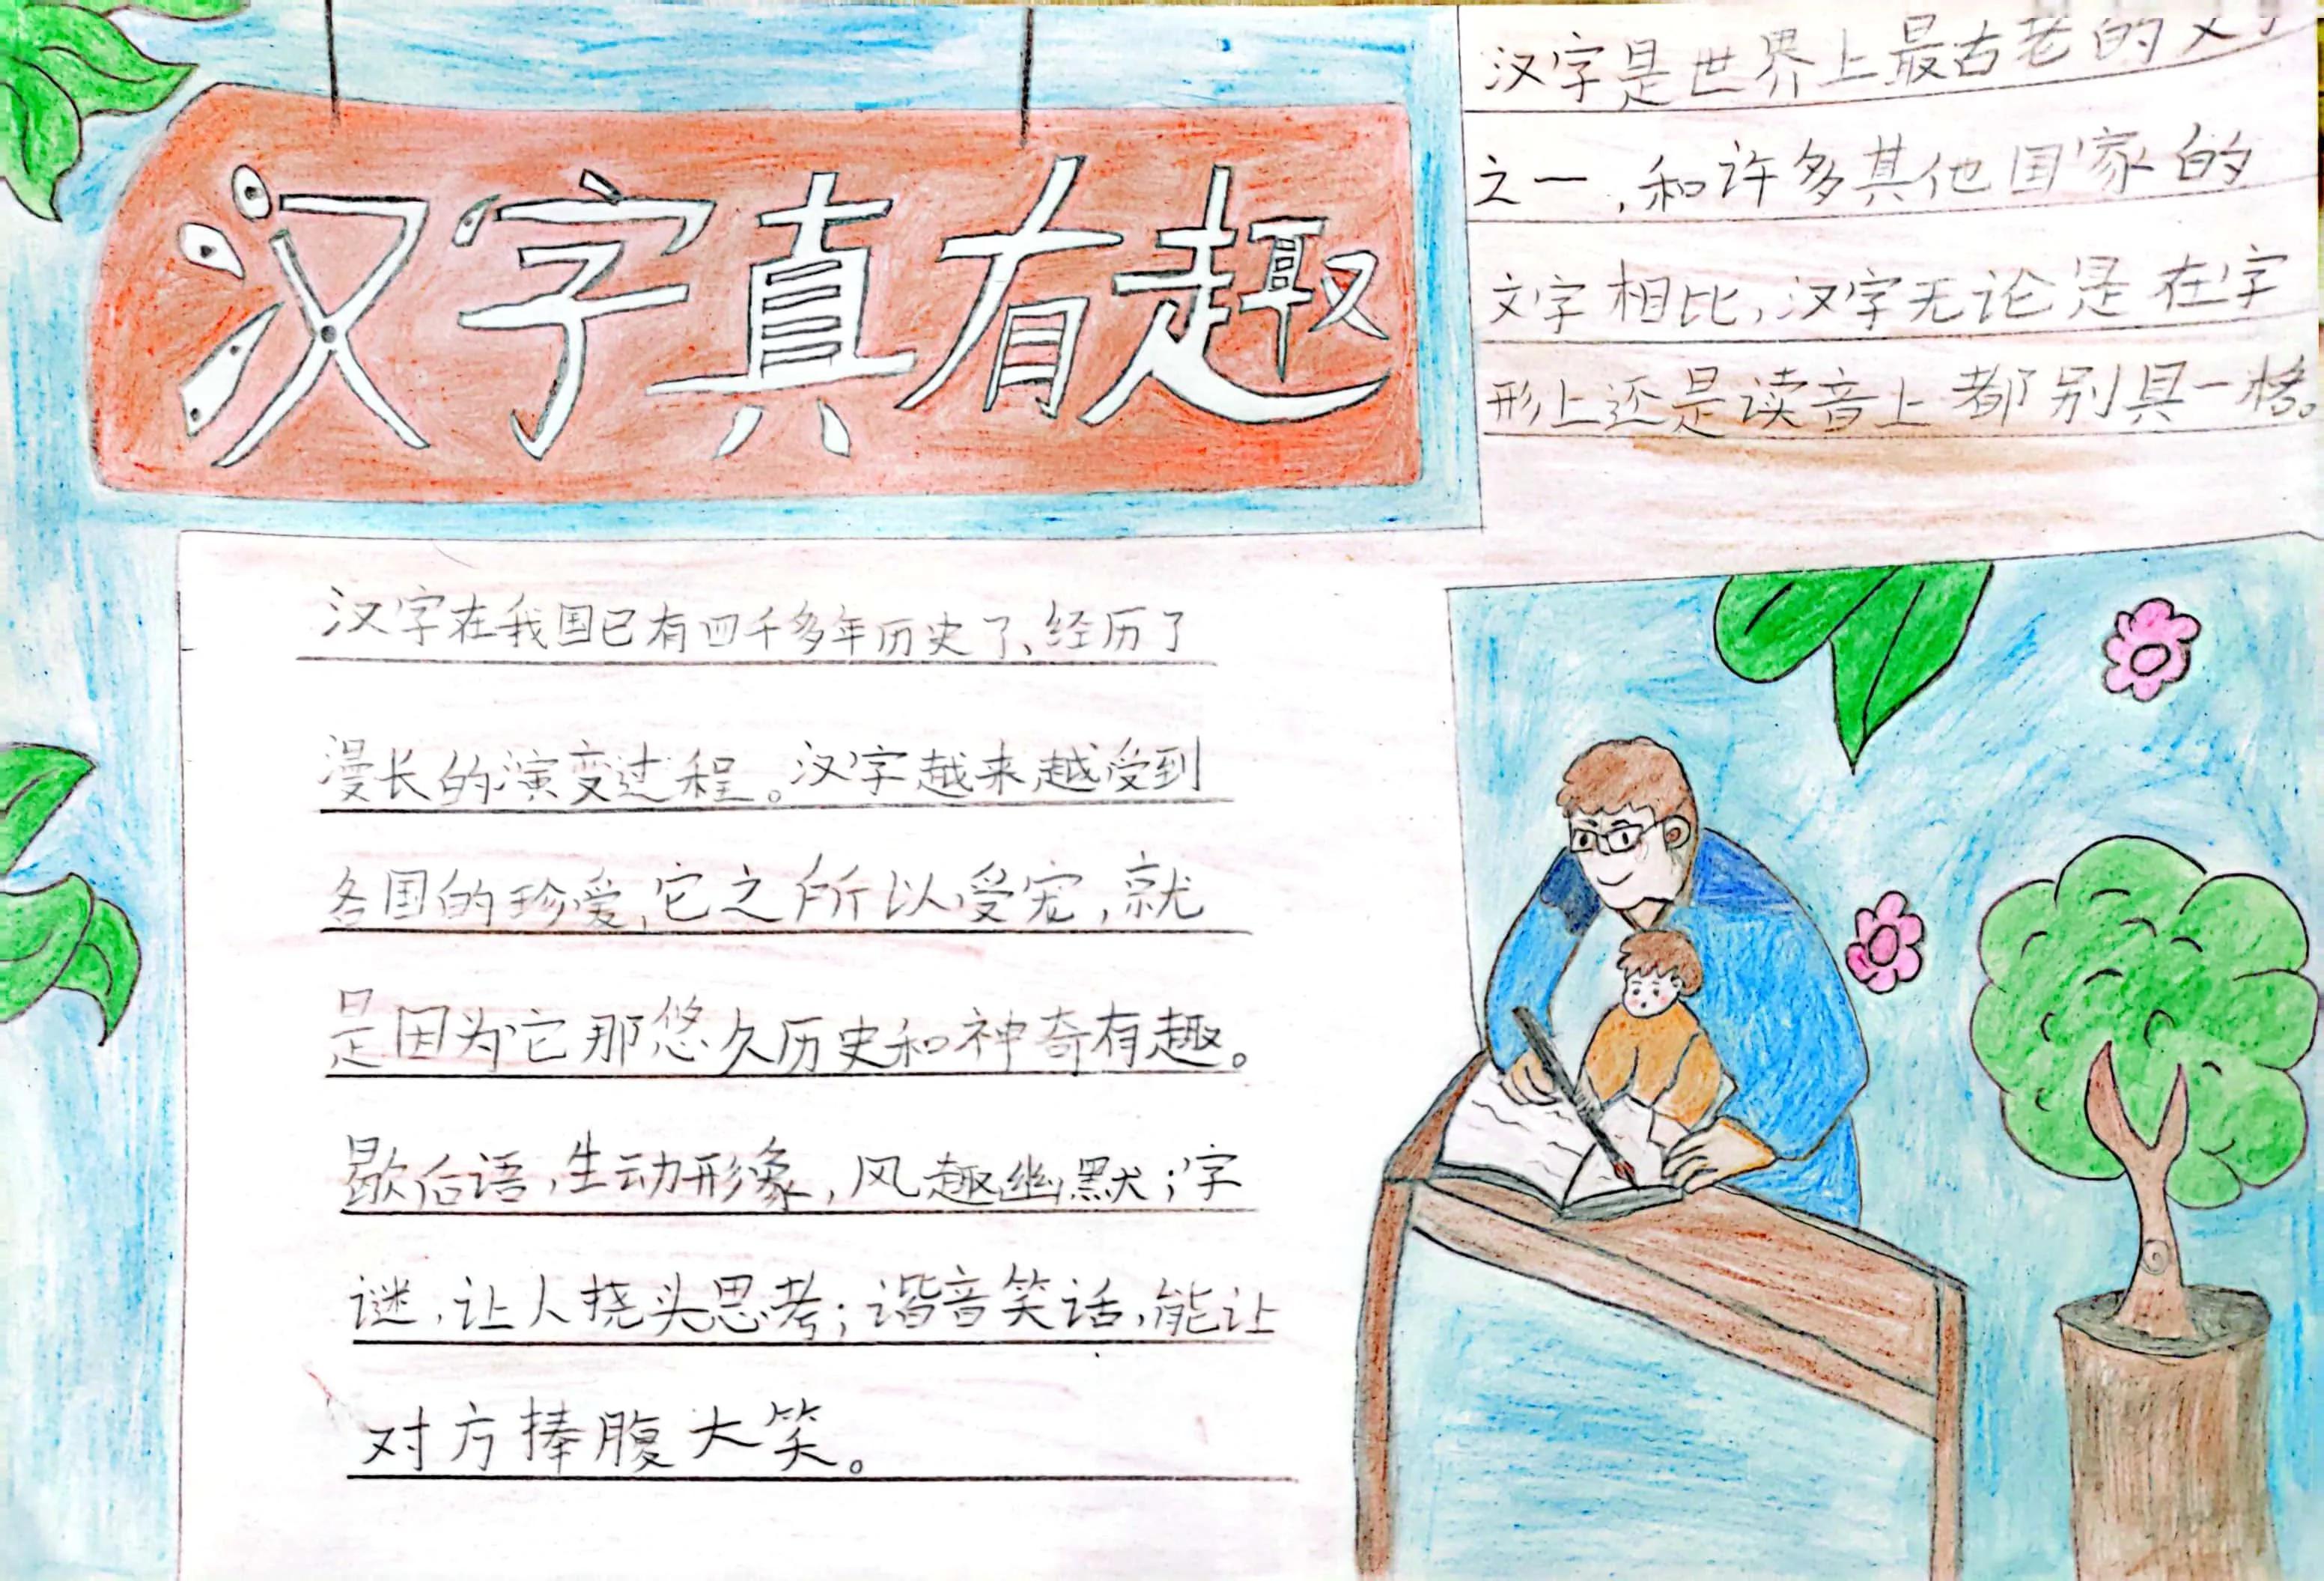 汉字真有趣
汉字是世界上最古老的文字
之一,和许多其他国家的
文字相比,汉字无论是在字
形上还是读音上都别具一格。
汉字在我国已有四千多年历史了、经历了
漫长的演变过程。汉字越来越受到
各国的珍爱,它之所以受宠,就
是因为它那悠久历史和神奇有趣。
歇后语,生动形象,风趣幽默;字
谜,让人挠头思考;谐音笑话,能让
对方捧腹大笑。